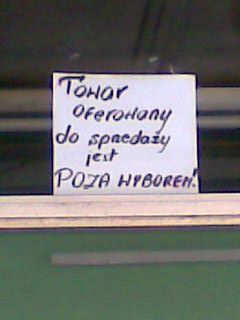 Towar
oferowany
do sprzedaży
jest
POZA WYBOREM!